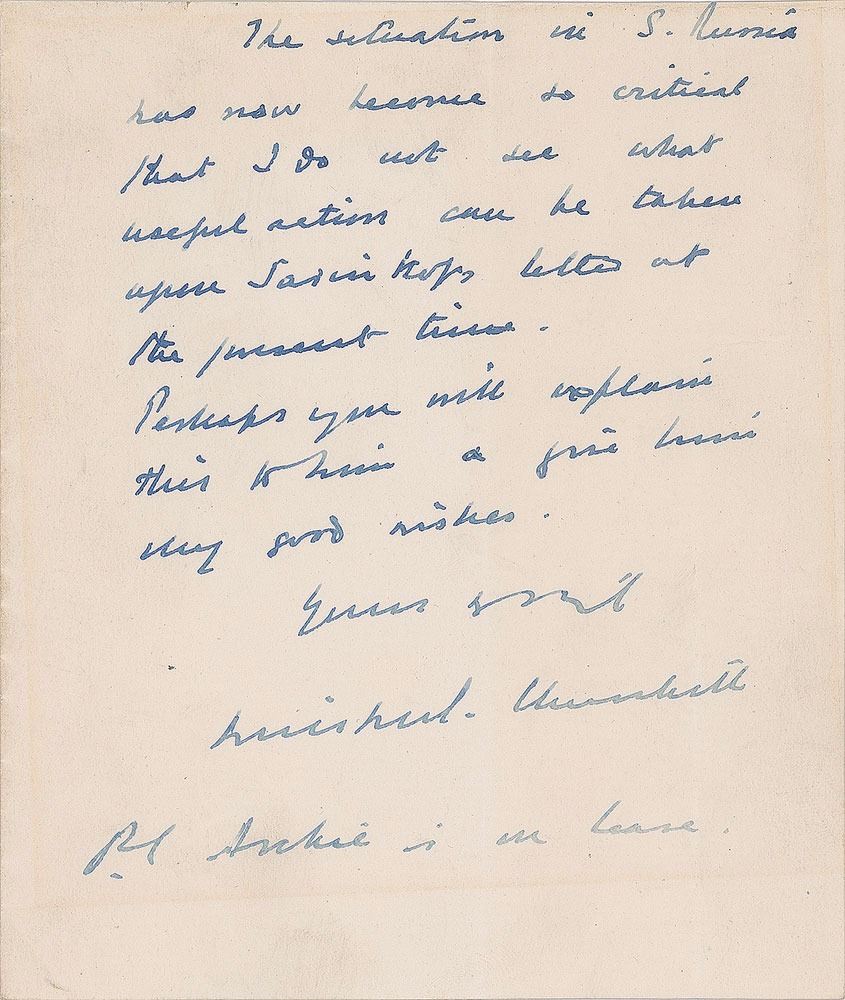 The situation in S. Russia
has now become so critical
that I do not see what
useful action can be taken
upon Savinkof's letter at
the present time.
Perhaps you will explain
this to him & give him
my good wishes.
Yours
Winston S. Churchill
PS Archie is on leave.